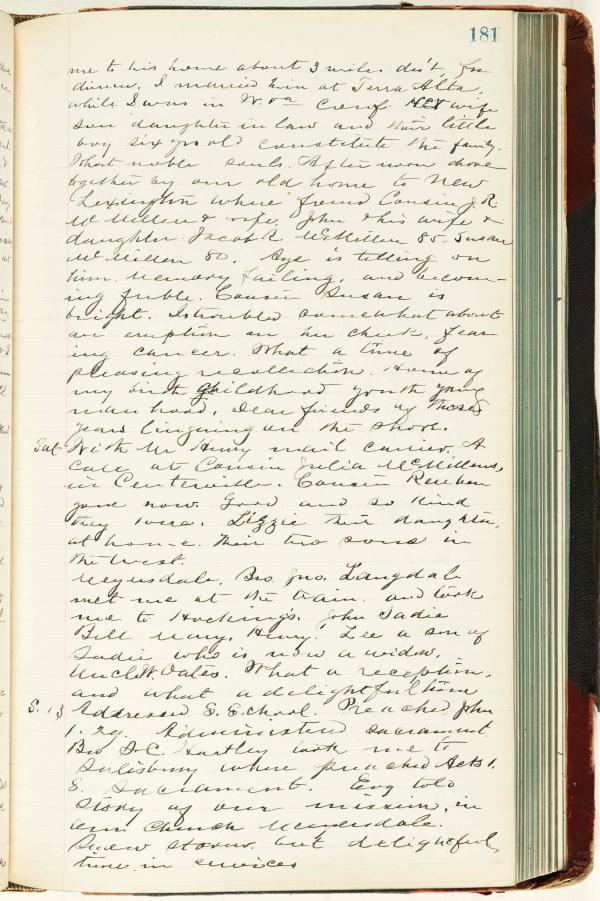 181
me to his home about 3 miles dis't, for
dinner. I married him at Terra Alta,
while I was in W. Va Conf. His wife
son daughter in law and their little
boy six yrs old constitute the family.
What noble souls. Afternoon drove
together by our old home to New
Lexington where found Cousin J. R.
McMillen & wife, John & his wife &
daughter. Jacob R. McMillen 85. Susan
McMillen 80. Age is telling on
him. Memory failing, and becom-
ing feble. Cousin Susan is
bright. Is troubled somewhat about
an eruption on her cheek, fear-
ing cancer. What a time of
pleasing recollection. Home of
my birth childhood youth young
manhood. Dear friends of those
years lingering on the shore.
Sat With Mr Henry mail carrier. A
call at Cousin Julia McMillens,
in Centerville. Cousin Reuben
gone now. Good and so kind
they were. Lizzie their daughter,
at home. Their two sons in
the West.
Meyersdale. Bro. Jno. Langdale
met me at the train and took
me to Hocking's. John Sadie
Bill Mary, Henry. Lee a son of
Sadie who is now a widow,
Uncle W. Oates. What a reception,
and what a delightful time
S. 13 Addressed S. School. Preached John
1. 29. Administered sacrament.
Bro I. C. Hartley took me to
Salisbury where preached Acts 1.
8. Sacrament. Evg told
story of our mission, in
our church Meyersdale.
Snew storm. but delightful
time in services